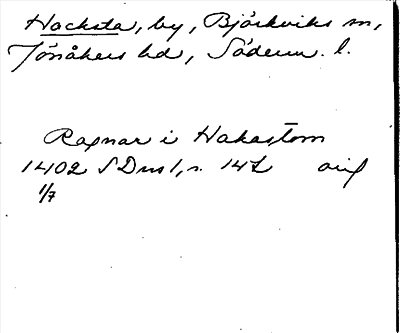 Hacksta, by, Björkviks sn,
Jönåkers hd, Söderm. l.
Ragnar i Hakastom
1402 SDns 1, s. 142 avs
1/7